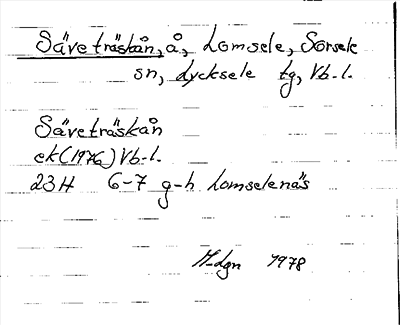 Säveträskån, å, Lomsele, Sorsele
sn, Lycksele tg, Vb-l.
Säveträskån
ek (1976) Vb-l.
23H 6-7 g-h Lomselenäs
M-dgn 1978